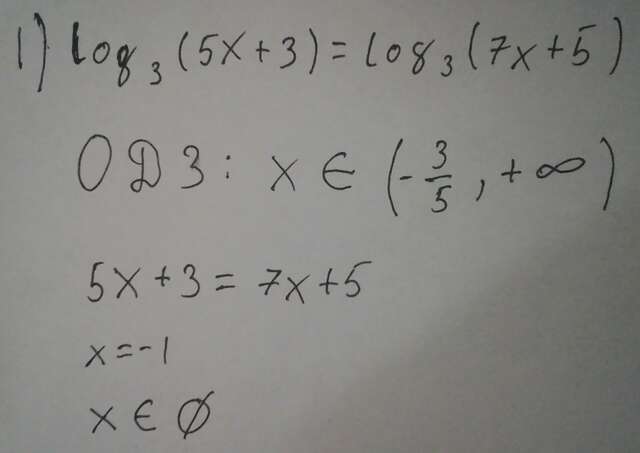 1) log₃(5x+3)=log₃(7x+5)
ОДЗ: x∈(-3/5, +∞)
5x+3=7x+5
x=-1
x∈∅